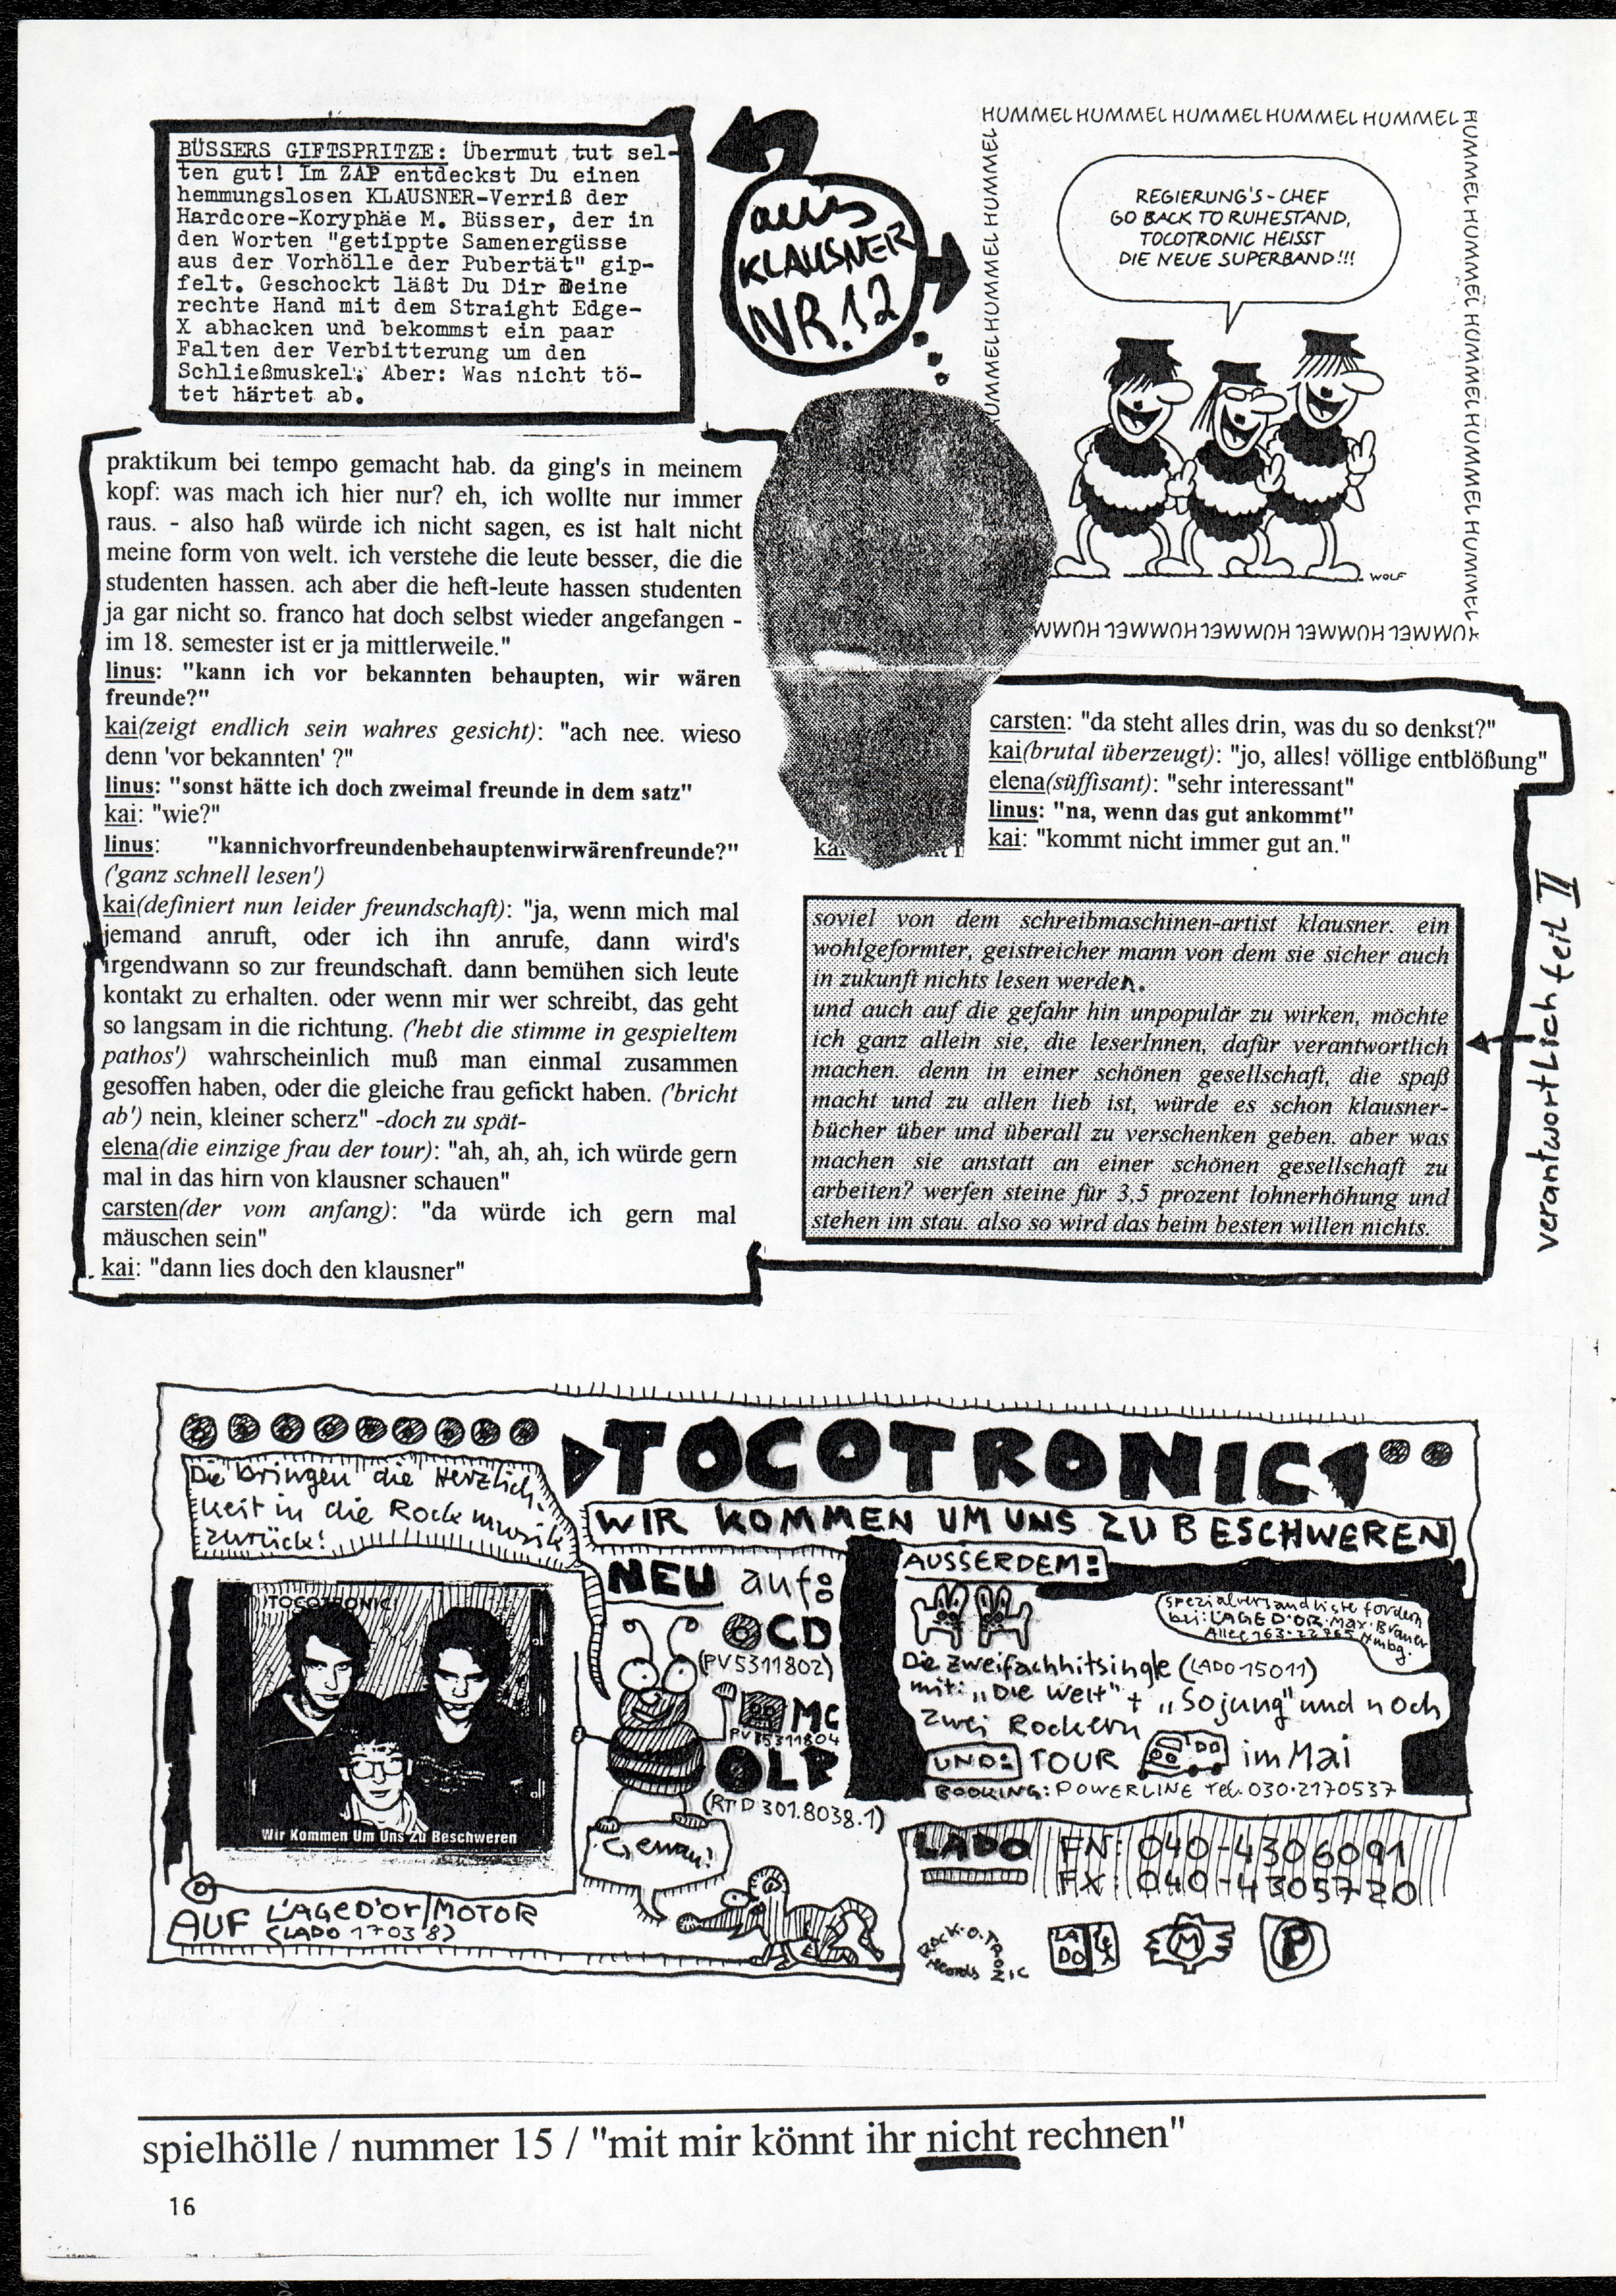 BÜSSERS GIFTSPRITZE: Übermut tut sel-
ten gut! Im ZAP entdeckst Du einen
hemmungslosen KLAUSNER-Verriß der
Hardcore-Koryphäe M. Büsser, der in
den Worten "getippte Samenergüsse
aus der Vorhölle der Pubertät" gip-
felt. Geschockt läßt Du Dir Deine
rechte Hand mit dem Straight Edge-
X abhacken und bekommst ein paar
Falten der Verbitterung um den
Schließmuskel. Aber: Was nicht tö-
tet härtet ab.
aus
KLAUSNER
NR. 12
HUMMEL HUMMEL HUMMEL HUMMEL HUMMEL
HUMMEL HUMMEL HUMMEL HUMMEL HUMMEL HUMMEL
HUMMEL HUMMEL HUMMEL HUMMEL
HUMMEL HUMMEL HUMMEL HUMMEL
REGIERUNG'S-CHEF
GO BACK TO RUHESTAND,
TOCOTRONIC HEISST
DIE NEUE SUPERBAND!!!
WOLF
praktikum bei tempo gemacht hab. da ging's in meinem
kopf: was mach ich hier nur? eh, ich wollte nur immer
raus. - also haß würde ich nicht sagen, es ist halt nicht
meine form von welt. ich verstehe die leute besser, die die
studenten hassen. ach aber die heft-leute hassen studenten
ja gar nicht so. franco hat doch selbst wieder angefangen -
im 18. semester ist er ja mittlerweile."
linus: "kann ich vor bekannten behaupten, wir wären
freunde?"
kai(zeigt endlich sein wahres gesicht): "ach nee. wieso
denn 'vor bekannten' ?"
linus: "sonst hätte ich doch zweimal freunde in dem satz"
kai: "wie?"
linus: "kannichvorfreundenbehauptenwirwärenfreunde?"
('ganz schnell lesen')
kai(definiert nun leider freundschaft): "ja, wenn mich mal
jemand anruft, oder ich ihn anrufe, dann wird's
irgendwann so zur freundschaft. dann bemühen sich leute
kontakt zu erhalten. oder wenn mir wer schreibt, das geht
so langsam in die richtung. ('hebt die stimme in gespieltem
pathos') wahrscheinlich muß man einmal zusammen
gesoffen haben, oder die gleiche frau gefickt haben. ('bricht
ab') nein, kleiner scherz" -doch zu spät-
elena(die einzige frau der tour): "ah, ah, ah, ich würde gern
mal in das hirn von klausner schauen"
carsten(der vom anfang): "da würde ich gern mal
mäuschen sein"
kai: "dann lies doch den klausner"
carsten: "da steht alles drin, was du so denkst?"
kai(brutal überzeugt): "jo, alles! völlige entblößung"
elena(süffisant): "sehr interessant"
linus: "na, wenn das gut ankommt"
kai: "kommt nicht immer gut an."
soviel von dem schreibmaschinen-artist klausner. ein
wohlgeformter, geistreicher mann von dem sie sicher auch
in zukunft nichts lesen werden.
und auch auf die gefahr hin unpopulär zu wirken, möchte
ich ganz allein sie, die leserInnen, dafür verantwortlich
machen. denn in einer schönen gesellschaft, die spaß
macht und zu allen lieb ist, würde es schon klausner-
bücher über und überall zu verschenken geben. aber was
machen sie anstatt an einer schönen gesellschaft zu
arbeiten? werfen steine für 3,5 prozent lohnerhöhung und
stehen im stau. also so wird das beim besten willen nichts.
verantwortlich teil II
TOCOTRONIC
WIR KOMMEN UM UNS ZU BESCHWEREN
Die bringen die Herzlich-
keit in die Rockmusik
zurück!
TOCOTRONIC
Wir Kommen Um Uns Zu Beschweren
AUF L'AGE D'OR/MOTOR
(LADO 17038)
NEU auf:
CD
(PV5311802)
MC
PV 5311804
LP
(RTD 301.8038.1)
Genau!
AUSSERDEM:
Spezialversandliste fordern
bei: L'AGE D'OR·Max·Brauer
Allee 163·22765 Hmbg.
Die zweifachhitsingle (LADO 15011)
mit: „Die Welt" + „So jung" und noch
zwei Rockern
UND: TOUR im Mai
BOOKING: POWERLINE Tel. 030·2170537
LADO FN: 040-4306091
FX: 040-4305720
ROCK·O·TRONIC
Records
LADO
M
P
spielhölle / nummer 15 / "mit mir könnt ihr nicht rechnen"
16